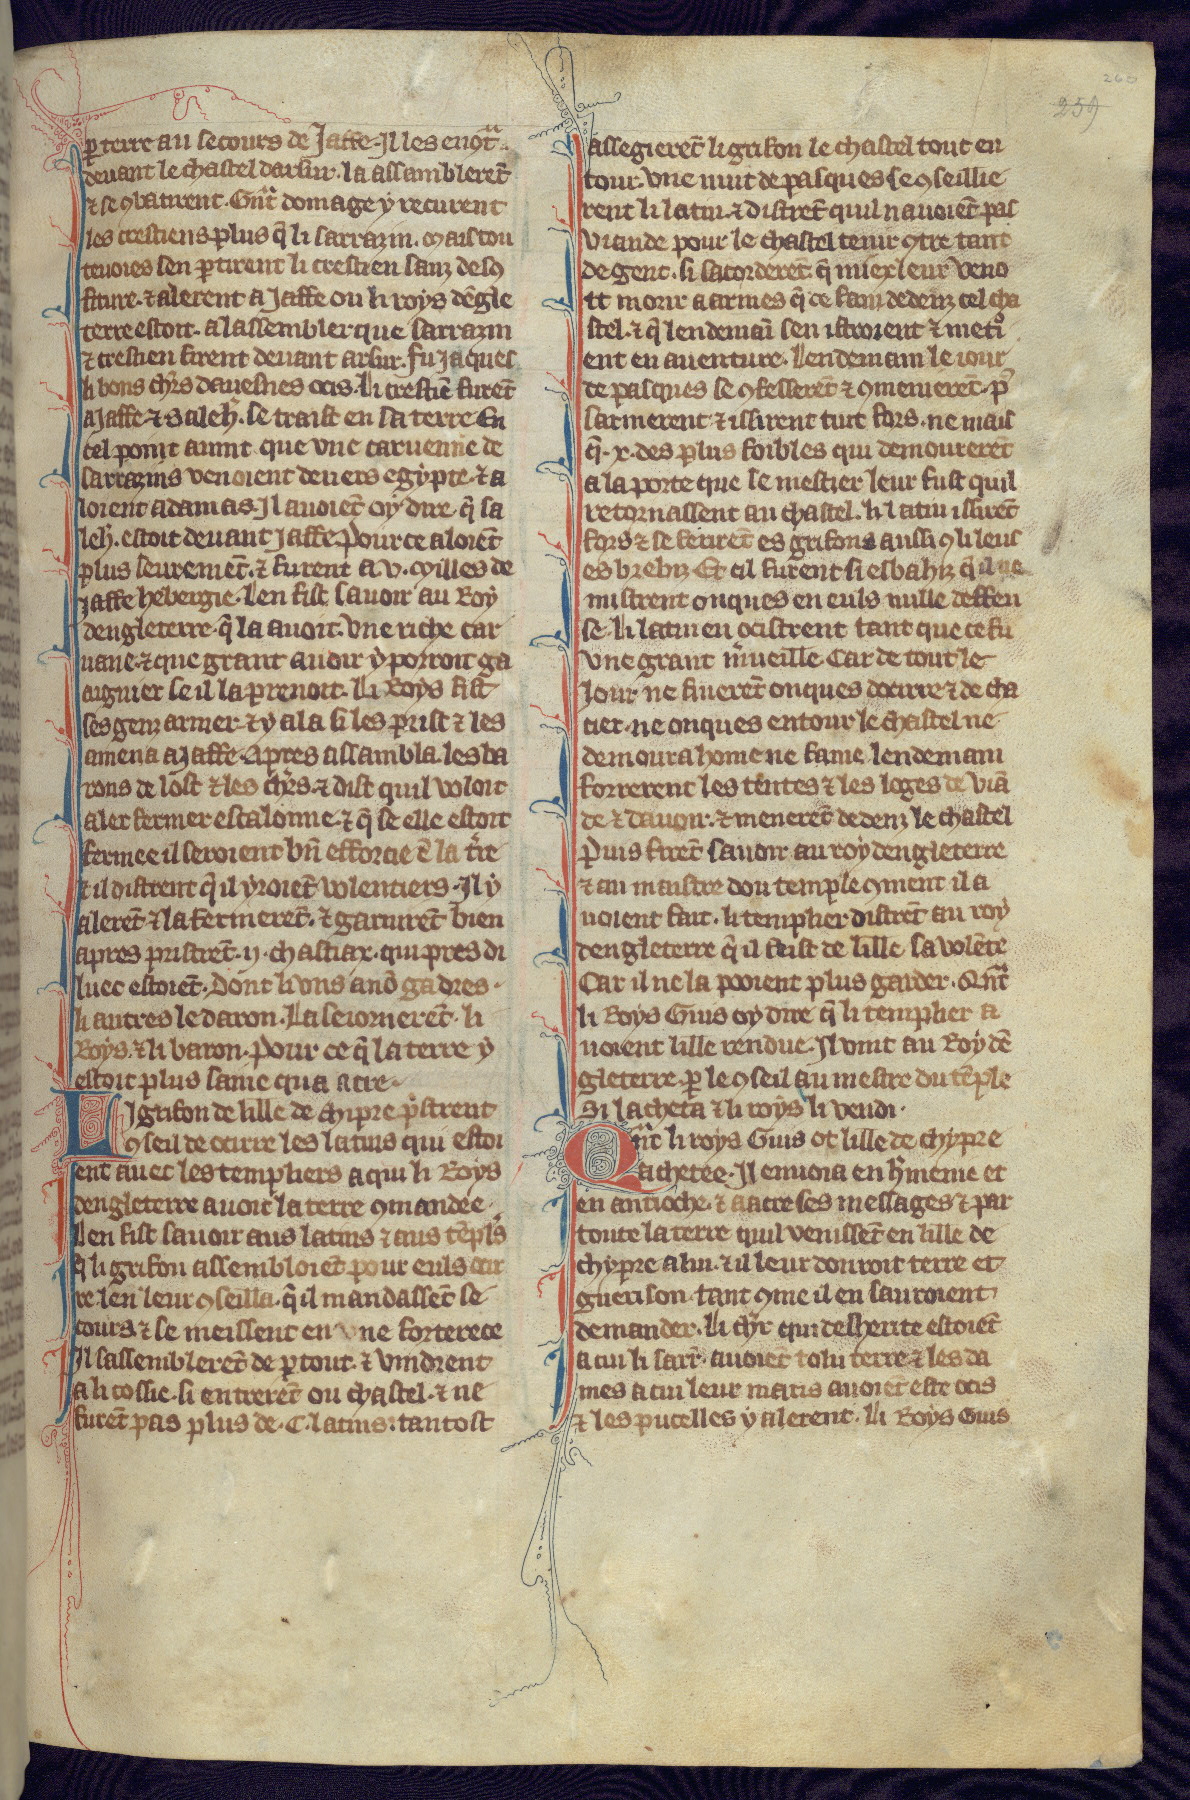 260
259
p̱ terre au secours de Jaffe. Il les encōtͣ.
deuant le chastel darsur. la assamblerēt
⁊ se ꝯbatirent. Gͣnt domage y recurent
les crestiens plus q̄ li sarrazin. Mais tou
teuoies sen ꝑtirent li crestien sanz desꝯ
fiture. ⁊ alerent a Jaffe ou li roys dēgle
terre estoit. a lassembler que sarrazin
⁊ crestien firent deuant arsur. fu Jaques
li bons chr̄s dauesnes ocis. Li crestiē furēt
a Jaffe ⁊ Saleh̄. se traist en sa terre En
cel point auint que vne caruenne de
sarrazins venoient deuers egypte. ⁊ a
loient a damas. Il auoiēt oy dire q̄ sa
leh̄. estoit deuant Jaffe Pour ce aloiēt
plus seuremēt. ⁊ furent a .v. Milles de
Jaffe hebergie. Len fist sauoir au Roy
dengleterre. q̄ la auoit vne riche car
uane. ⁊ que grant auoir y porroit ga
aignier se il la prenoit. Li Roys fist
ses genz armer. ⁊ y ala si les prist ⁊ les
amena a Jaffe. Apres assambla les ba
rons de lost ⁊ les chr̄s. ⁊ dist quil voloit
aler fermer escalonne. ⁊ q̄ se elle estoit
fermee il seroient bn̄ efforcie ē la t̄re
⁊ il distrent q̄ il yroiēt volentiers. Il y
alerēt ⁊ la fermerēt. ⁊ garnirēt bien
apres pristrēt .ij. chastiax. qui pres di
luec estoiēt. Dont li vns a nō gadres.
li autres le daron. La seiornerēt. li
Roys. ⁊ li baron. Pour ce q̄ la terre y
estoit plus saine qua acre.
Li grifon de lille de chipre p̄strent
ꝯseil de ocirre les latins qui estoi
ent auec les templiers a qui li Roys
dengleterre auoit la terre ꝯmandee.
Len fist sauoir aus latins ⁊ aus tēpl̄s
q̄ li grifon assembloiēt pour euls ocir
re len leur ꝯseilla. q̄ il mandassēt se
cours. ⁊ se meissent en vne forterece
Il sassemblerēt de ꝑtout. ⁊ vindrent
a li cossie. si entrerēt ou chastel. ⁊ ne
furēt pas plus de .C. latins. tantost
assegierēt li grifon le chastel tout en
tour. vne nuit de pasques se ꝯseillie
rent li latin. ⁊ distrēt quil nauoiēt pas
viande pour le chastel tenir ꝯtre tant
de gent. si sacorderēt q̄ miex leur veno
it morir a armes q̄ de faim dedenz cel cha
stel. ⁊ q̄ lendemaī sen istroient ⁊ metͦi
ent en auenture. Lendemain le iour
de pasques se ꝯfesserēt ⁊ ꝯmenierēt. pͥ
sarmerent ⁊ issirent tuit fors. ne mais
q̄ .x. des plus foibles qui demourerēt
a la porte que se mestier leur fust quil
retornassent au chastel. li latin issirēt
fors ⁊ se ferirēt es grifons aussi ꝯ li leus
es brebiz Et cil furent si esbahiz q̄ il ne
mistrent onques en euls nulle deffen
se. Li latin en ocistrent tant que ce fu
vne grant mͬueille. Car de tout le
Jour ne finerēt onques docirre ⁊ de cha
cier. ne onques entour le chastel ne
demoura home ne fame. lendemain
forrerent les tentes ⁊ les loges de viā
de ⁊ dauoir. ⁊ menerēt dedenz le chastel
Puis firēt sauoir au roy dengleterre
⁊ au maistre dou temple ꝯment il a
uoient fait. li templier distrēt au roy
dengleterre q̄ il feist de lille sa volēte
Car il ne la pooient plus garder. Qͣnt
li Roys Guis oy dire q̄ li templier a
uoient lille rendue. Il vint au Roy dē
gleterre. ꝑ le ꝯseil au mestre du tēple
Si lacheta ⁊ li roys li vendi.
Qͣnt li roys Guis ot lille de chypre
achetee. Il enuoia en h̄menie et
en antioche. ⁊ a acre ses messages ⁊ par
toute la terre quil venissēt en lille de
chypre a lui. ⁊ il leur donroit terre et
guerison. tant ꝯme il en sauroient
demander. Li chr̄ qui desherite estoiēt
a cui li sarr̄. auoiēt tolu terre ⁊ les da
mes a cui leur maris auoiēt este ocis
⁊ les pucelles y alerent. Li Roys Guis